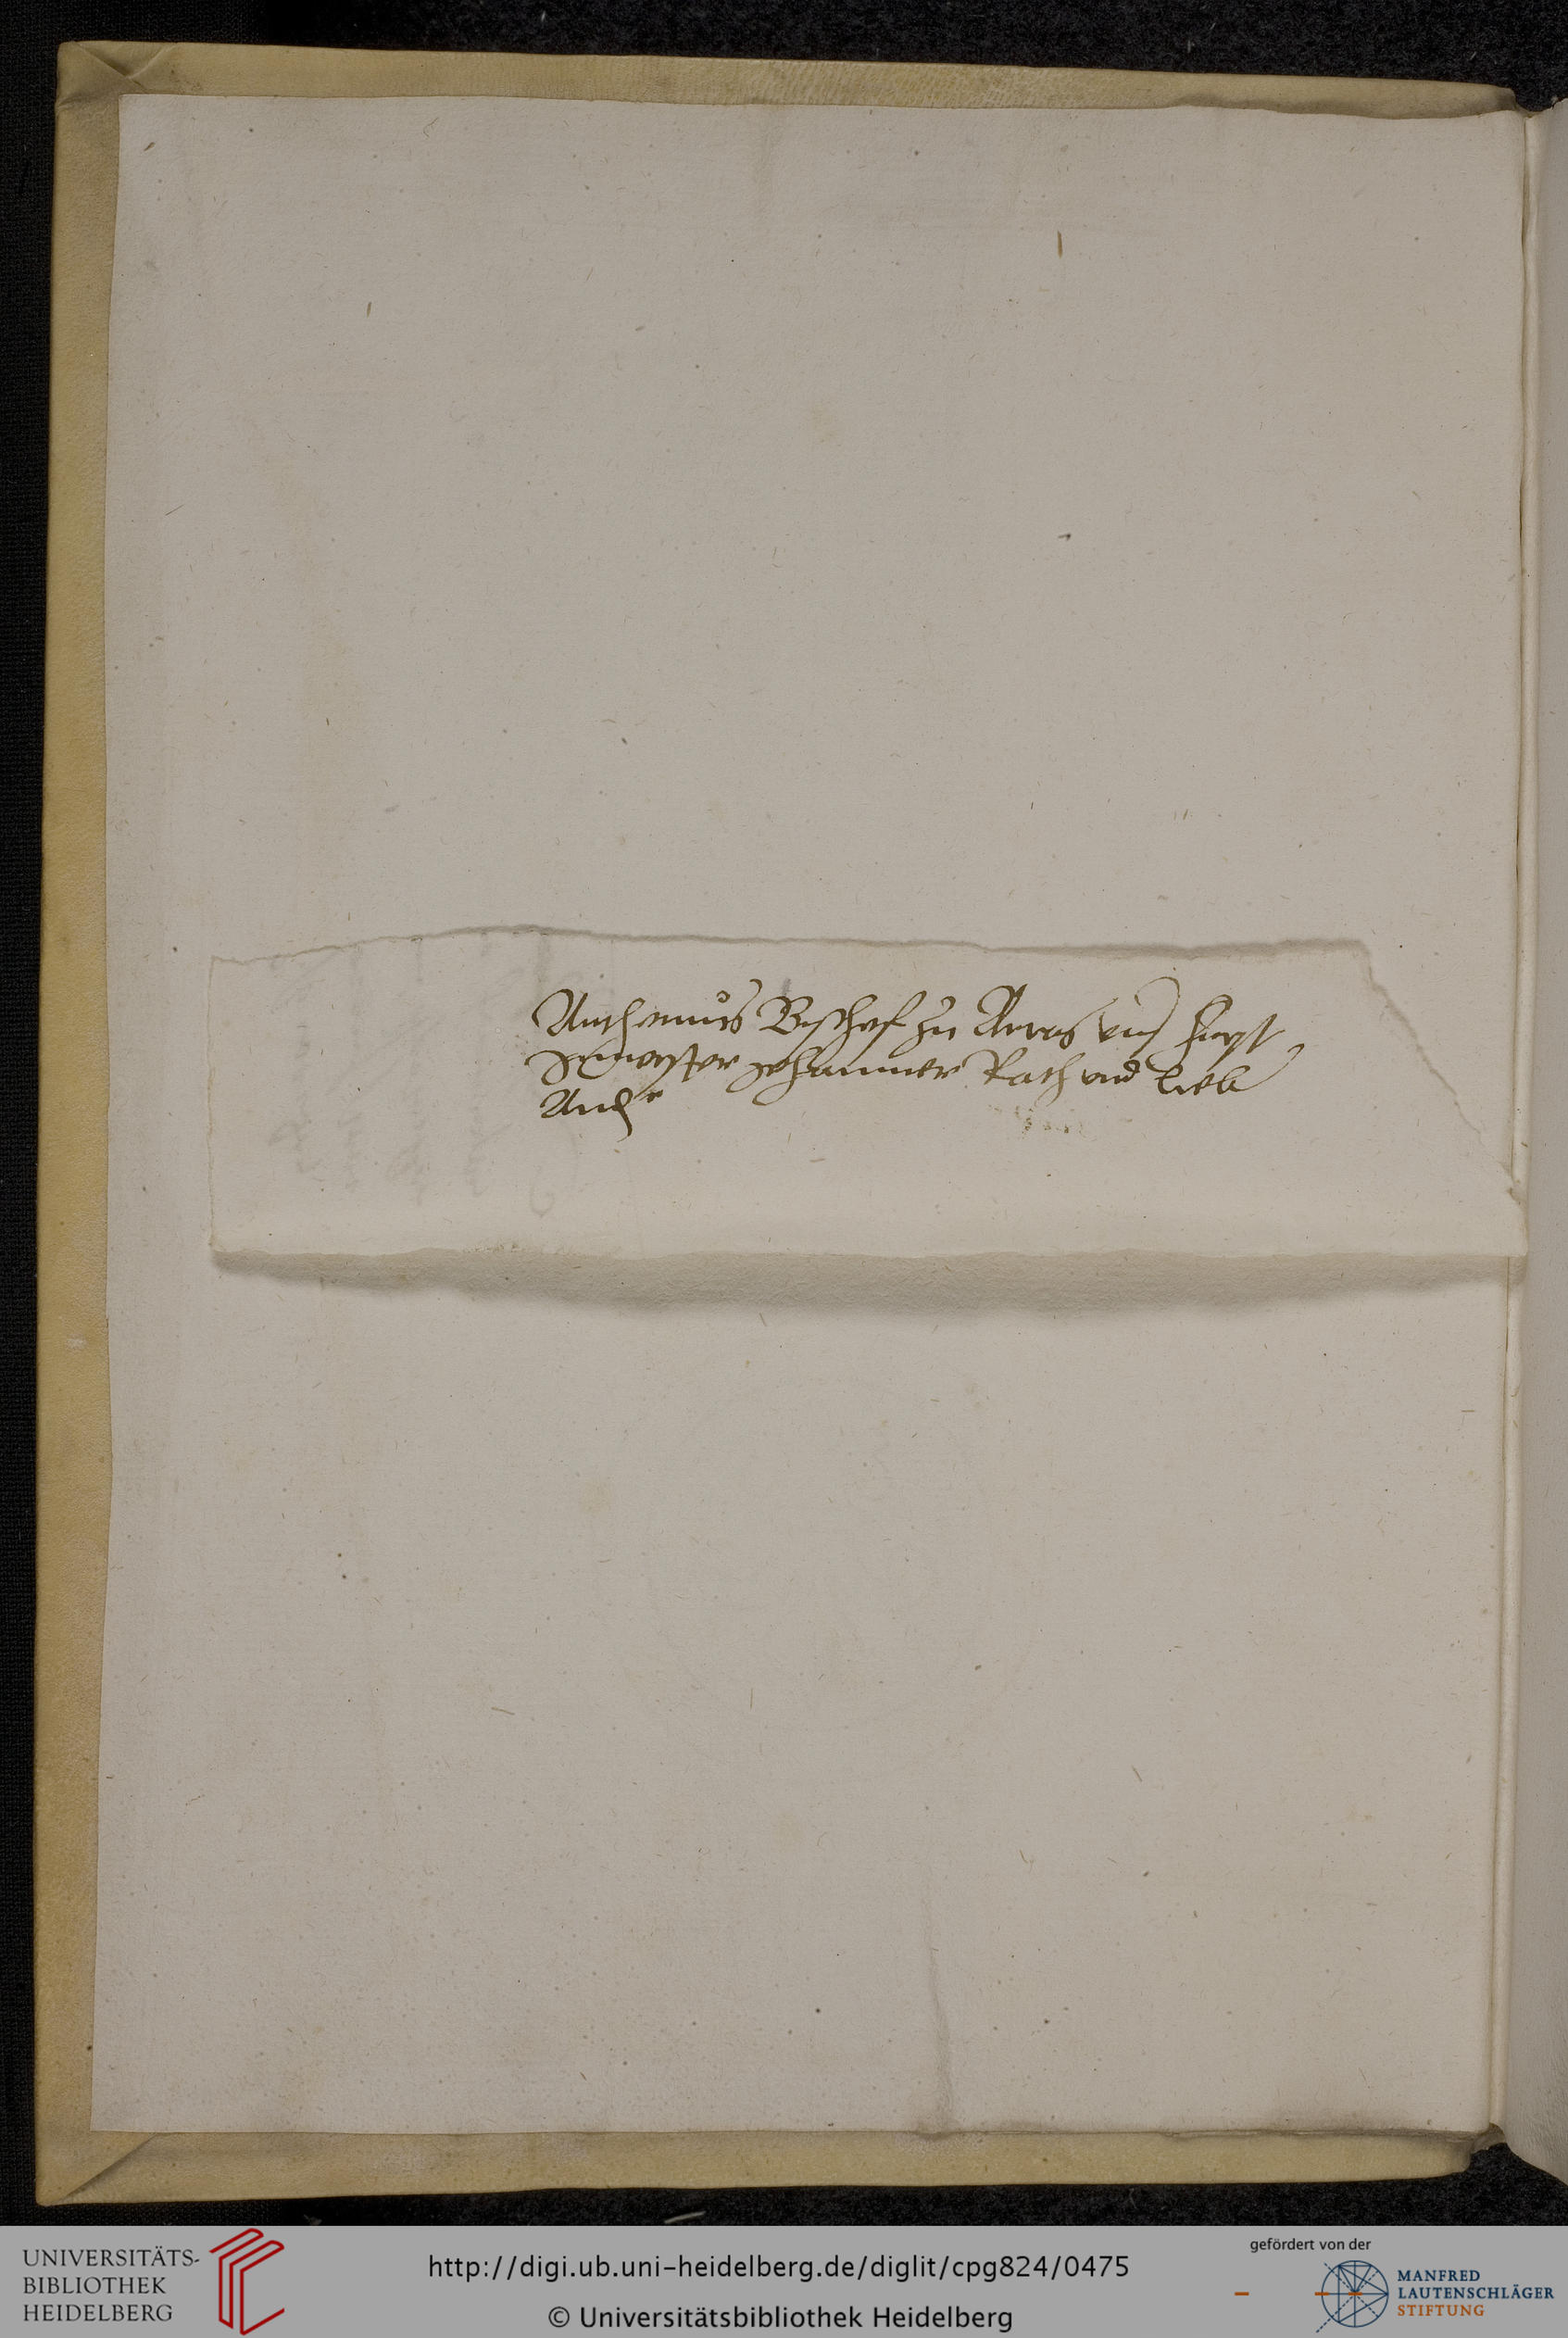 Anthonius Bischof zu Arras vnd
Johannes Rath vnd lieb
And
UNIVERSITÄTS-
BIBLIOTHEK
HEIDELBERG
http://digi.ub.uni-heidelberg.de/diglit/cpg824/0475
© Universitätsbibliothek Heidelberg
gefördert von der
MANFRED
LAUTENSCHLÄGER
STIFTUNG